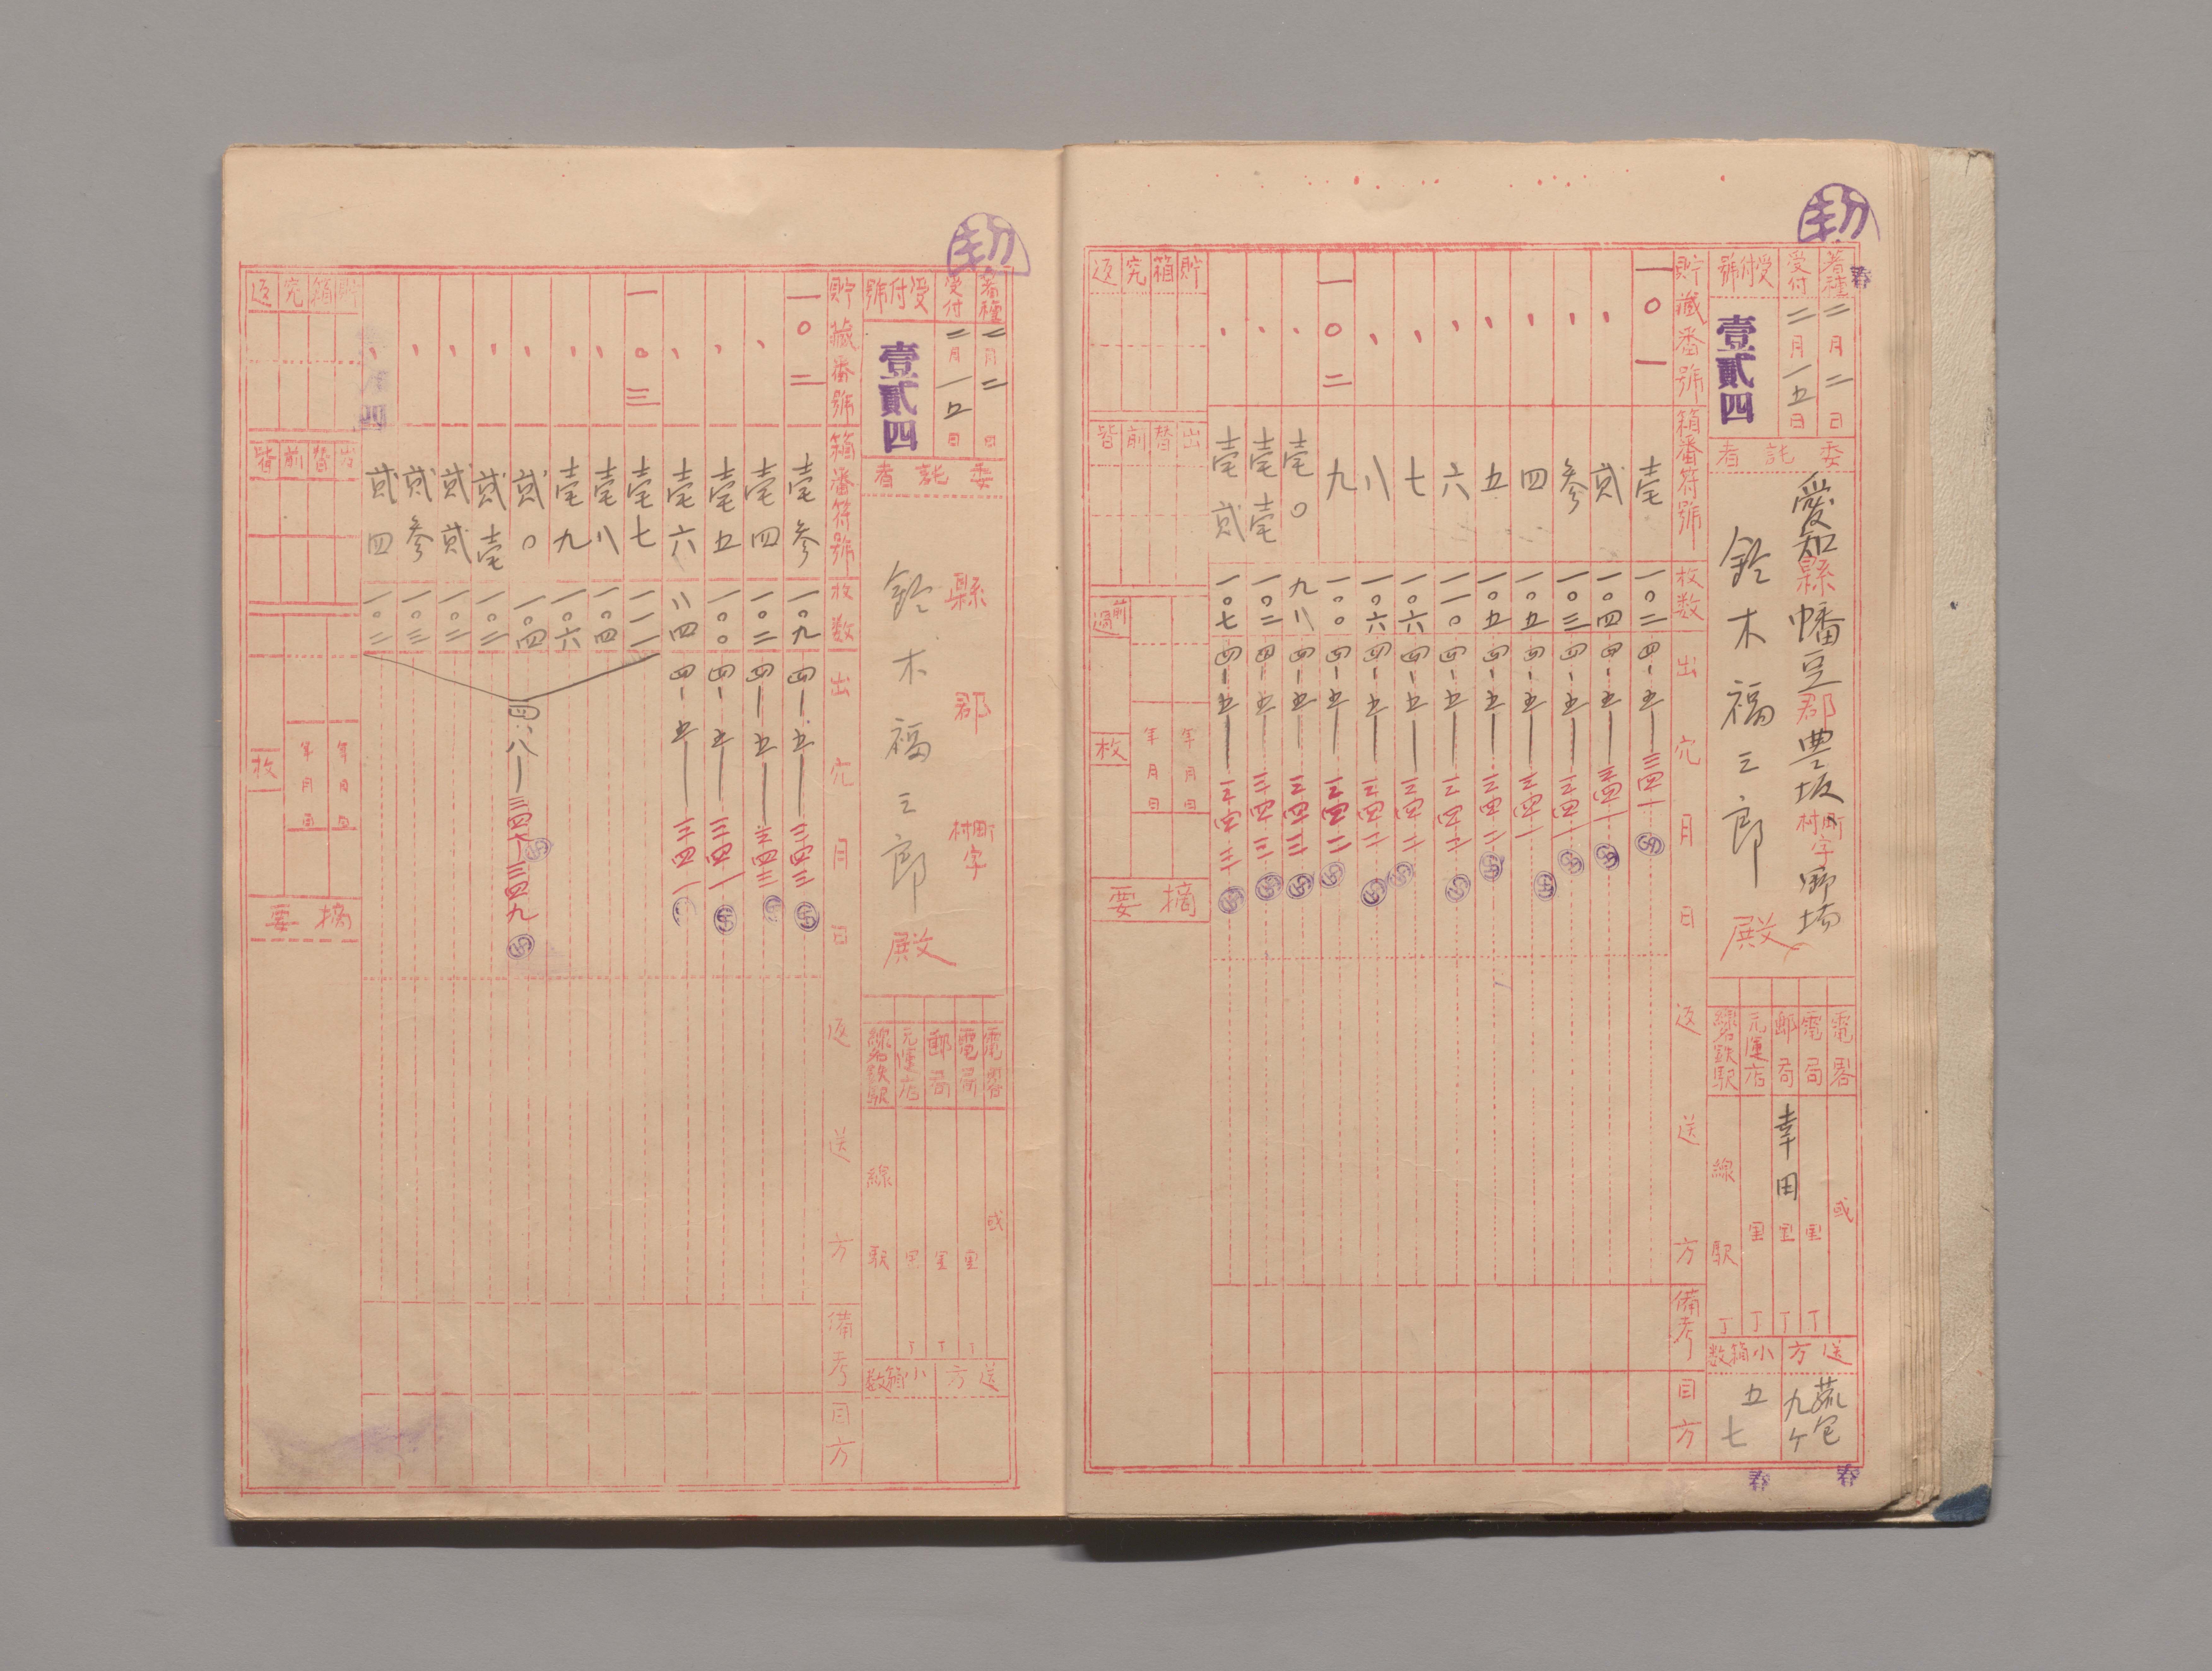 春
着種 二月二日
受付 二月一五日
受付號 壹貳四
委託者
愛知縣幡豆郡豊坂町村字野場
鈴木福三郎殿
電畧 或
電局 里 丁
郵局 幸田 里 丁
元運店 里 丁
線名鉄駅 線 駅 丁
送方 蔬包 九ケ
小箱数 五 七
春
春
貯藏番號 箱番符號 枚数 出穴月日 返送方 備考 目方
一〇一 壹 一〇二 四-五 三四一
、 貳 一〇四 四-五 三四一
、 参 一〇三 四-五 三四一
、 四 一〇五 四-五 三四一
、 五 一〇五 四-五 三四二
、 六 一一〇 四-五 三四二
、 七 一〇六 四-五 三四二
、 八 一〇六 四-五 三四二
一〇二 九 一〇〇 四-五 三四二
、 壹〇 九八 四-五 三四三
、 壹壹 一〇二 四-五 三四三
、 壹貳 一〇七 四-五 三四三
貯箱究返
出替前皆
前過 枚
年月日
年月日
摘要
着種 二月二日
受付 二月一五日
受付號 壹貳四
委託者
縣 郡 町村字
鈴木福三郎殿
電畧 或
電局 里 丁
郵局 里 丁
元運店 里 丁
線名鉄駅 線 駅
送方
小箱数
貯藏番號 箱番符號 枚数 出穴月日 返送方 備考 目方
一〇二 壹参 一〇九 四-五 三四三
、 壹四 一〇二 四-五 三四三
、 壹五 一〇〇 四-五 三四一
、 壹六 八四 四-五 三四一
一〇三 壹七 一一一
、 壹八 一〇四
、 壹九 一〇六
、 貳〇 一〇四
四、八-三四七-三四九
、 貳壹 一〇二
、 貳貳 一〇二
、 貳参 一〇三
、 貳四 一〇二
貯箱究返
出替前皆
枚
年月日
年月日
摘要